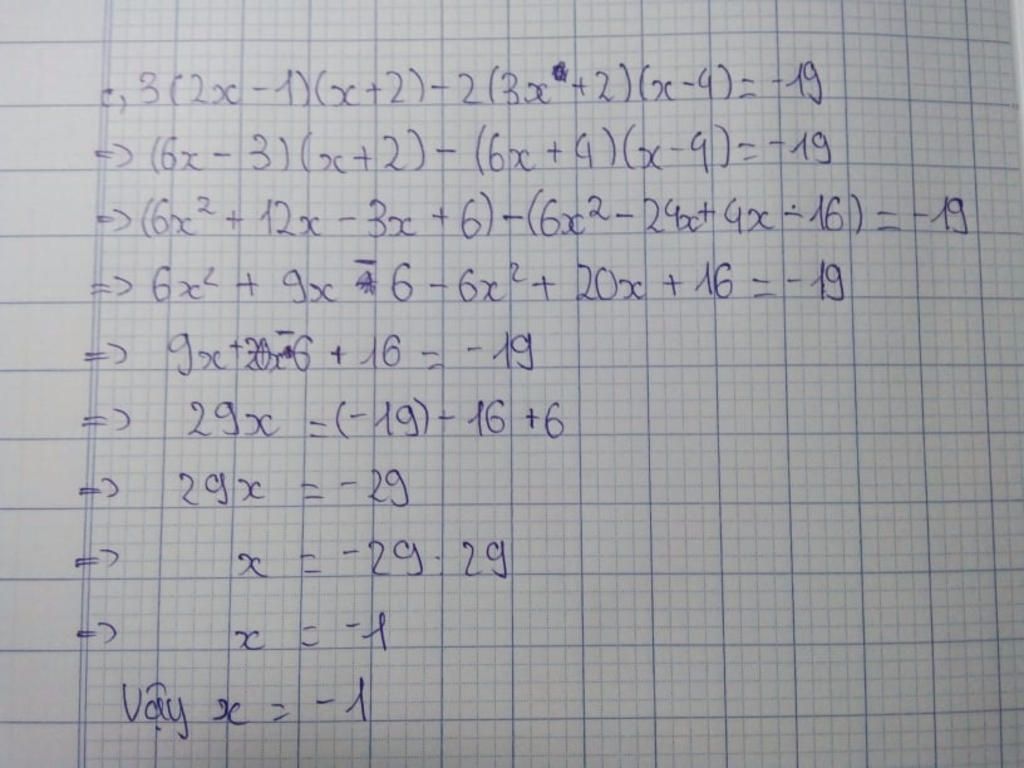 c, 3(2x-1)(x+2)-2(3x+2)(x-4)=-19
=> (6x-3)(x+2)-(6x+4)(x-4)=-19
=> (6x²+12x-3x+6)-(6x²-24x+4x-16)=-19
=> 6x²+9x-6-6x²+20x+16=-19
=> 9x+20x-6+16=-19
=> 29x=(-19)-16+6
=> 29x=-29
=> x=-29:29
=> x=-1
Vậy x=-1